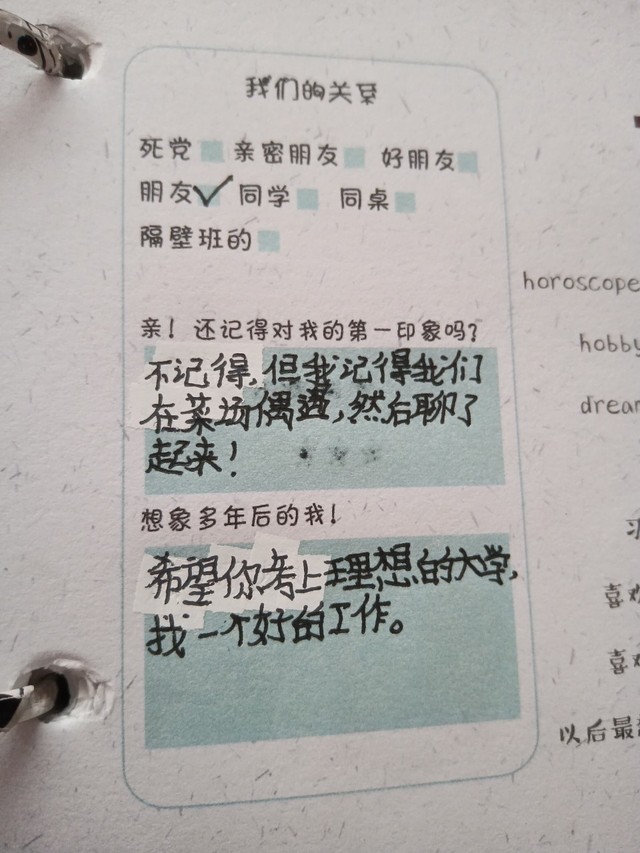 我们的关系
死党 亲密朋友 好朋友
朋友✓ 同学 同桌
隔壁班的
亲！还记得对我的第一印象吗？
不记得，但我记得我们
在菜场偶遇，然后聊了
起来！
想象多年后的我！
希望你考上理想的大学，
找一个好的工作。
horoscope
hobby
dream
喜欢
喜欢
以后最